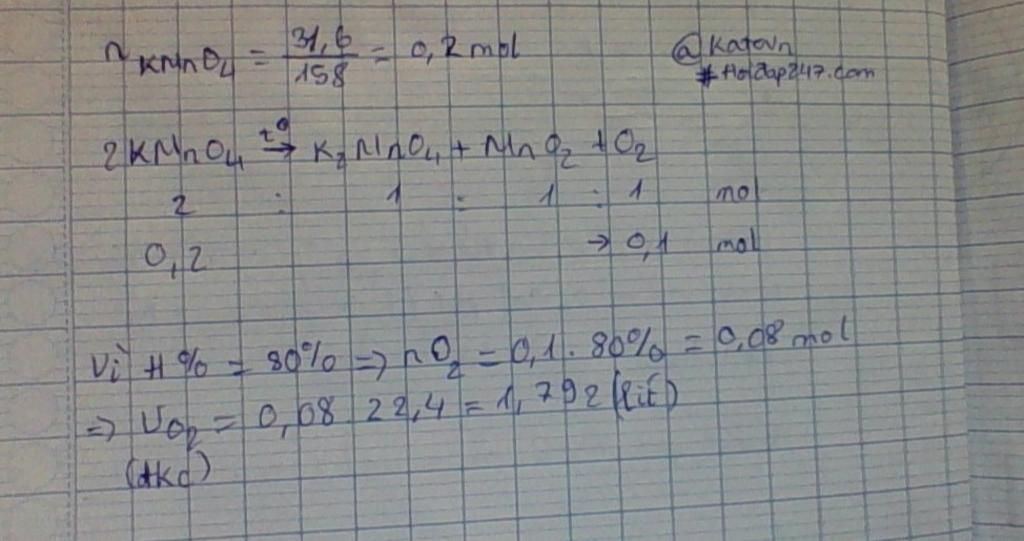 n KMnO4 = 31,6 / 158 = 0,2 mol
@Katovn
#Hoidap247.com
2KMnO4 t° → K2MnO4 + MnO2 + O2
2 : 1 : 1 : 1 mol
0,2 → 0,1 mol
Vì H% = 80% => nO2 = 0,1 . 80% = 0,08 mol
=> VO2 = 0,08 22,4 = 1,792 (lít)
(đkc)